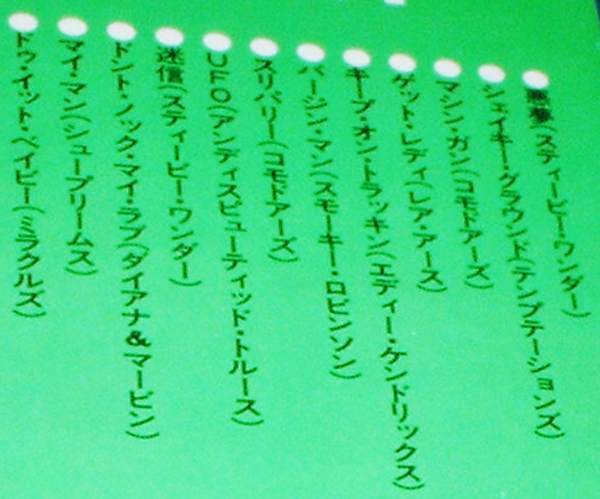 ●悪夢(スティービー・ワンダー)
●シェイキー・グラウンド(テンプテーションズ)
●マシン・ガン(コモドアーズ)
●ゲット・レディ(レア・アース)
●キープ・オン・トラッキン(エディー・ケンドリックス)
●バージン・マン(スモーキー・ロビンソン)
●スリパリー(コモドアーズ)
●UFO(アンディスピューティッド・トルース)
●迷信(スティービー・ワンダー)
●ドント・ノック・マイ・ラブ(ダイアナ&マービン)
●マイ・マン(シュープリームス)
●ドゥ・イット・ベイビー(ミラクルズ)